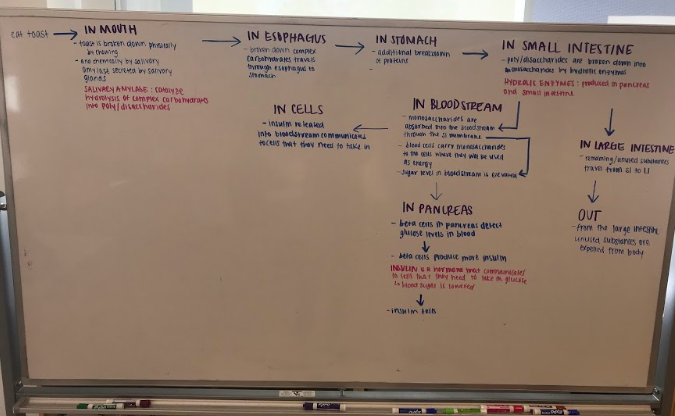 eat toast
IN MOUTH
- toast is broken down physically
by chewing
- and chemically by salivary
amylase secreted by salivary
glands
SALIVARY AMYLASE: catalyze
hydrolysis of complex carbohydrates
into poly/disaccharides
IN ESOPHAGUS
- broken down complex
carbohydrates travels
through esophagus to
stomach
IN STOMACH
- additional breakdown
of proteins
-
IN SMALL INTESTINE
- poly/disaccharides are broken down into
monosaccharides by hydrolic enzymes
HYDROLIC ENZYMES: produced in pancreas
and small intestine
IN CELLS
- insulin released
into bloodstream communicates
to cells that they need to take in
IN BLOODSTREAM
- monosaccharides are
absorbed into the bloodstream
through the SI membrane
- blood cells carry monosaccharides
to the cells where they will be used
as energy
- sugar level in bloodstream is
IN PANCREAS
- beta cells in pancreas detect
glucose levels in blood
- beta cells produce more insulin
INSULIN is a hormone that communicates
to cells that they need to take in glucose
blood sugar is lowered
- insulin
IN LARGE INTESTINE
- remaining/unused substances
travel from SI to LI
OUT
- from the large intestine
unused substances are
from body